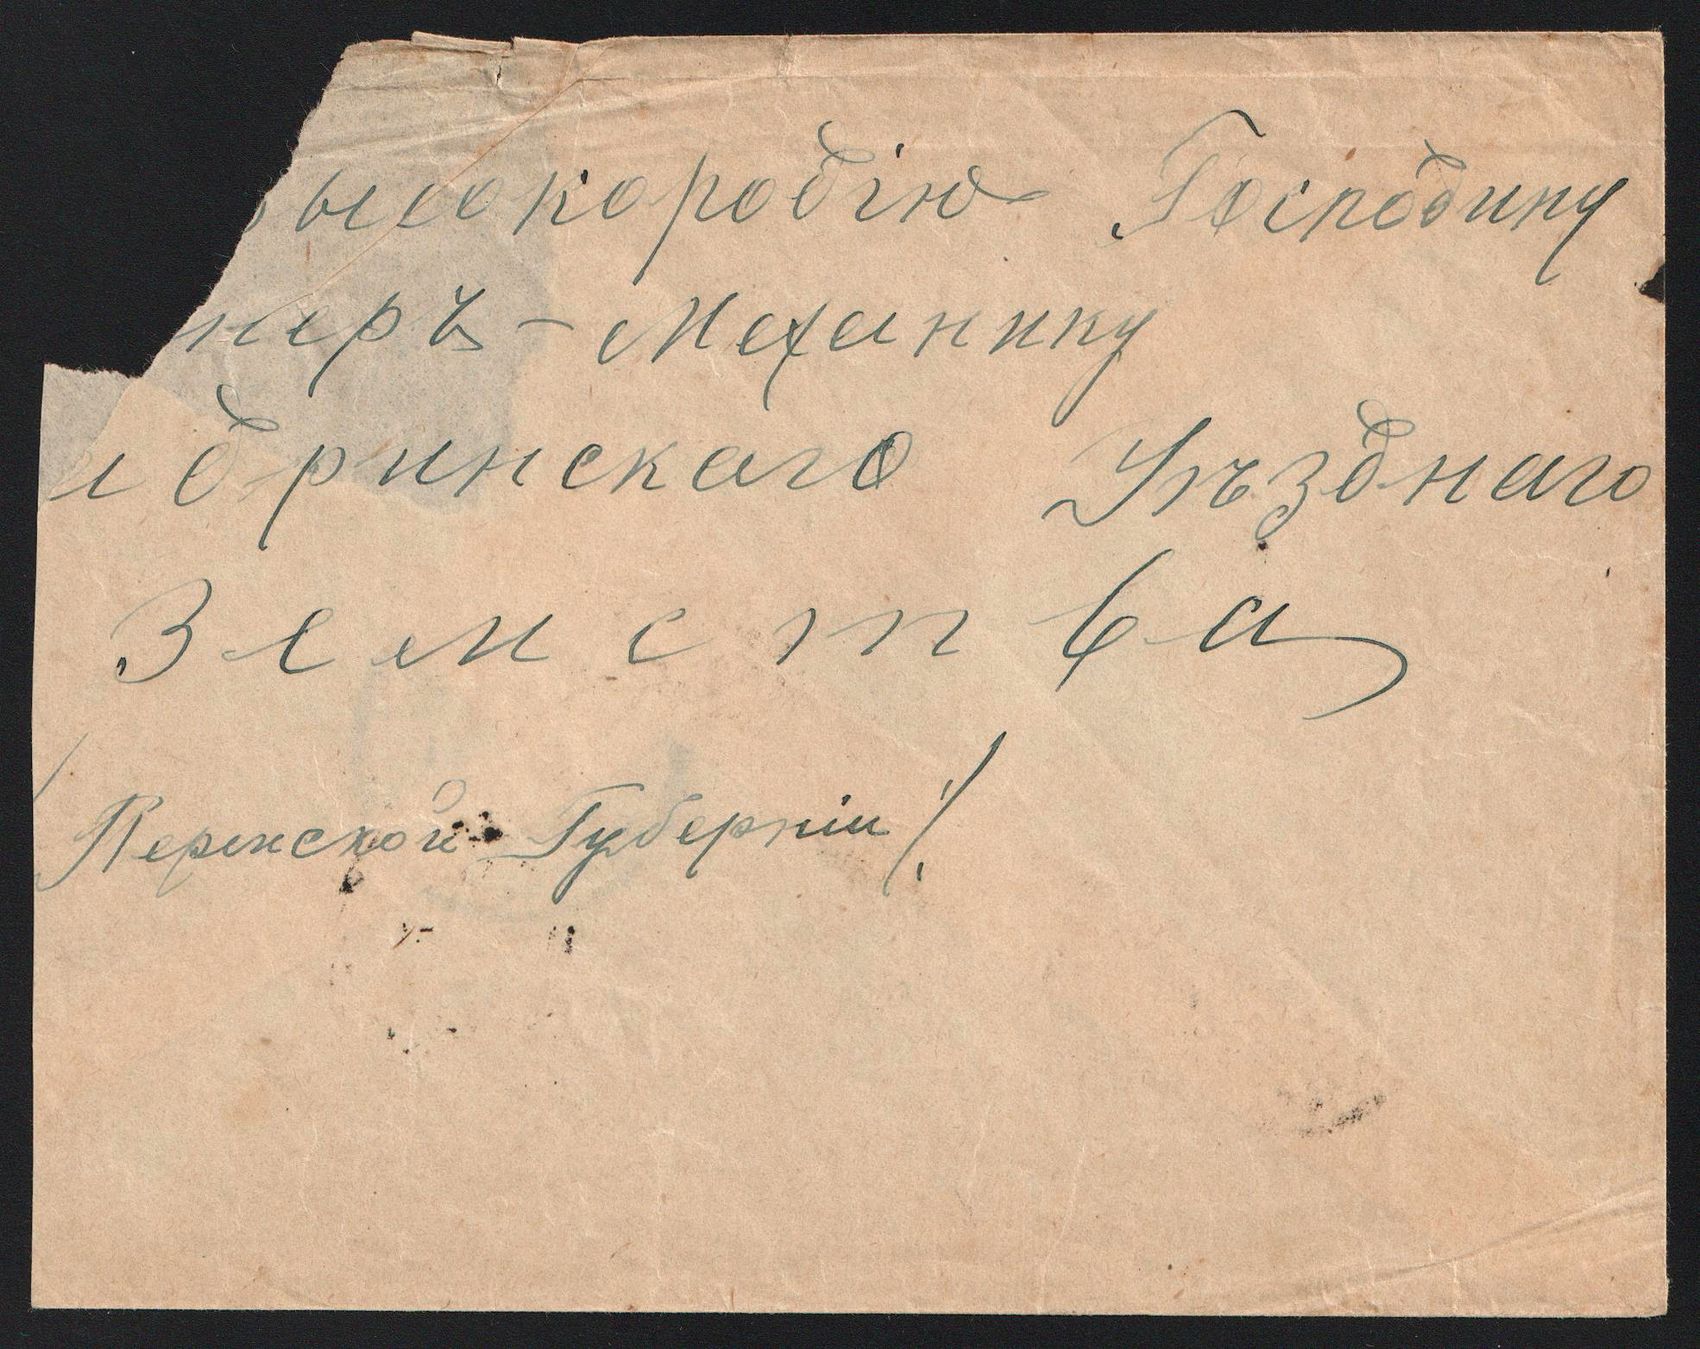 ысокородію Господину
неръ-Механику
адринскаго Уѣзднаго
Земства
/Пермской Губерніи/